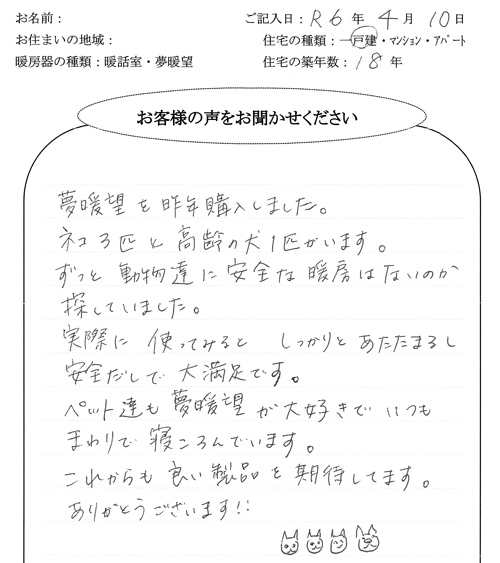 お名前： ご記入日： R6 年 4 月 10 日
お住まいの地域： 住宅の種類：一戸建・マンション・アパート
暖房器の種類：暖話室・夢暖望 住宅の築年数： 18 年
お客様の声をお聞かせください
夢暖望を昨年購入しました。
ネコ3匹と高齢の犬1匹がいます。
ずっと動物達に安全な暖房はないのか
探していました。
実際に使ってみると しっかりとあたたまるし
安全だしで大満足です。
ペット達も夢暖望が大好きでいつも
まわりで寝ころんでいます。
これからも良い製品を期待してます。
ありがとうございます!!